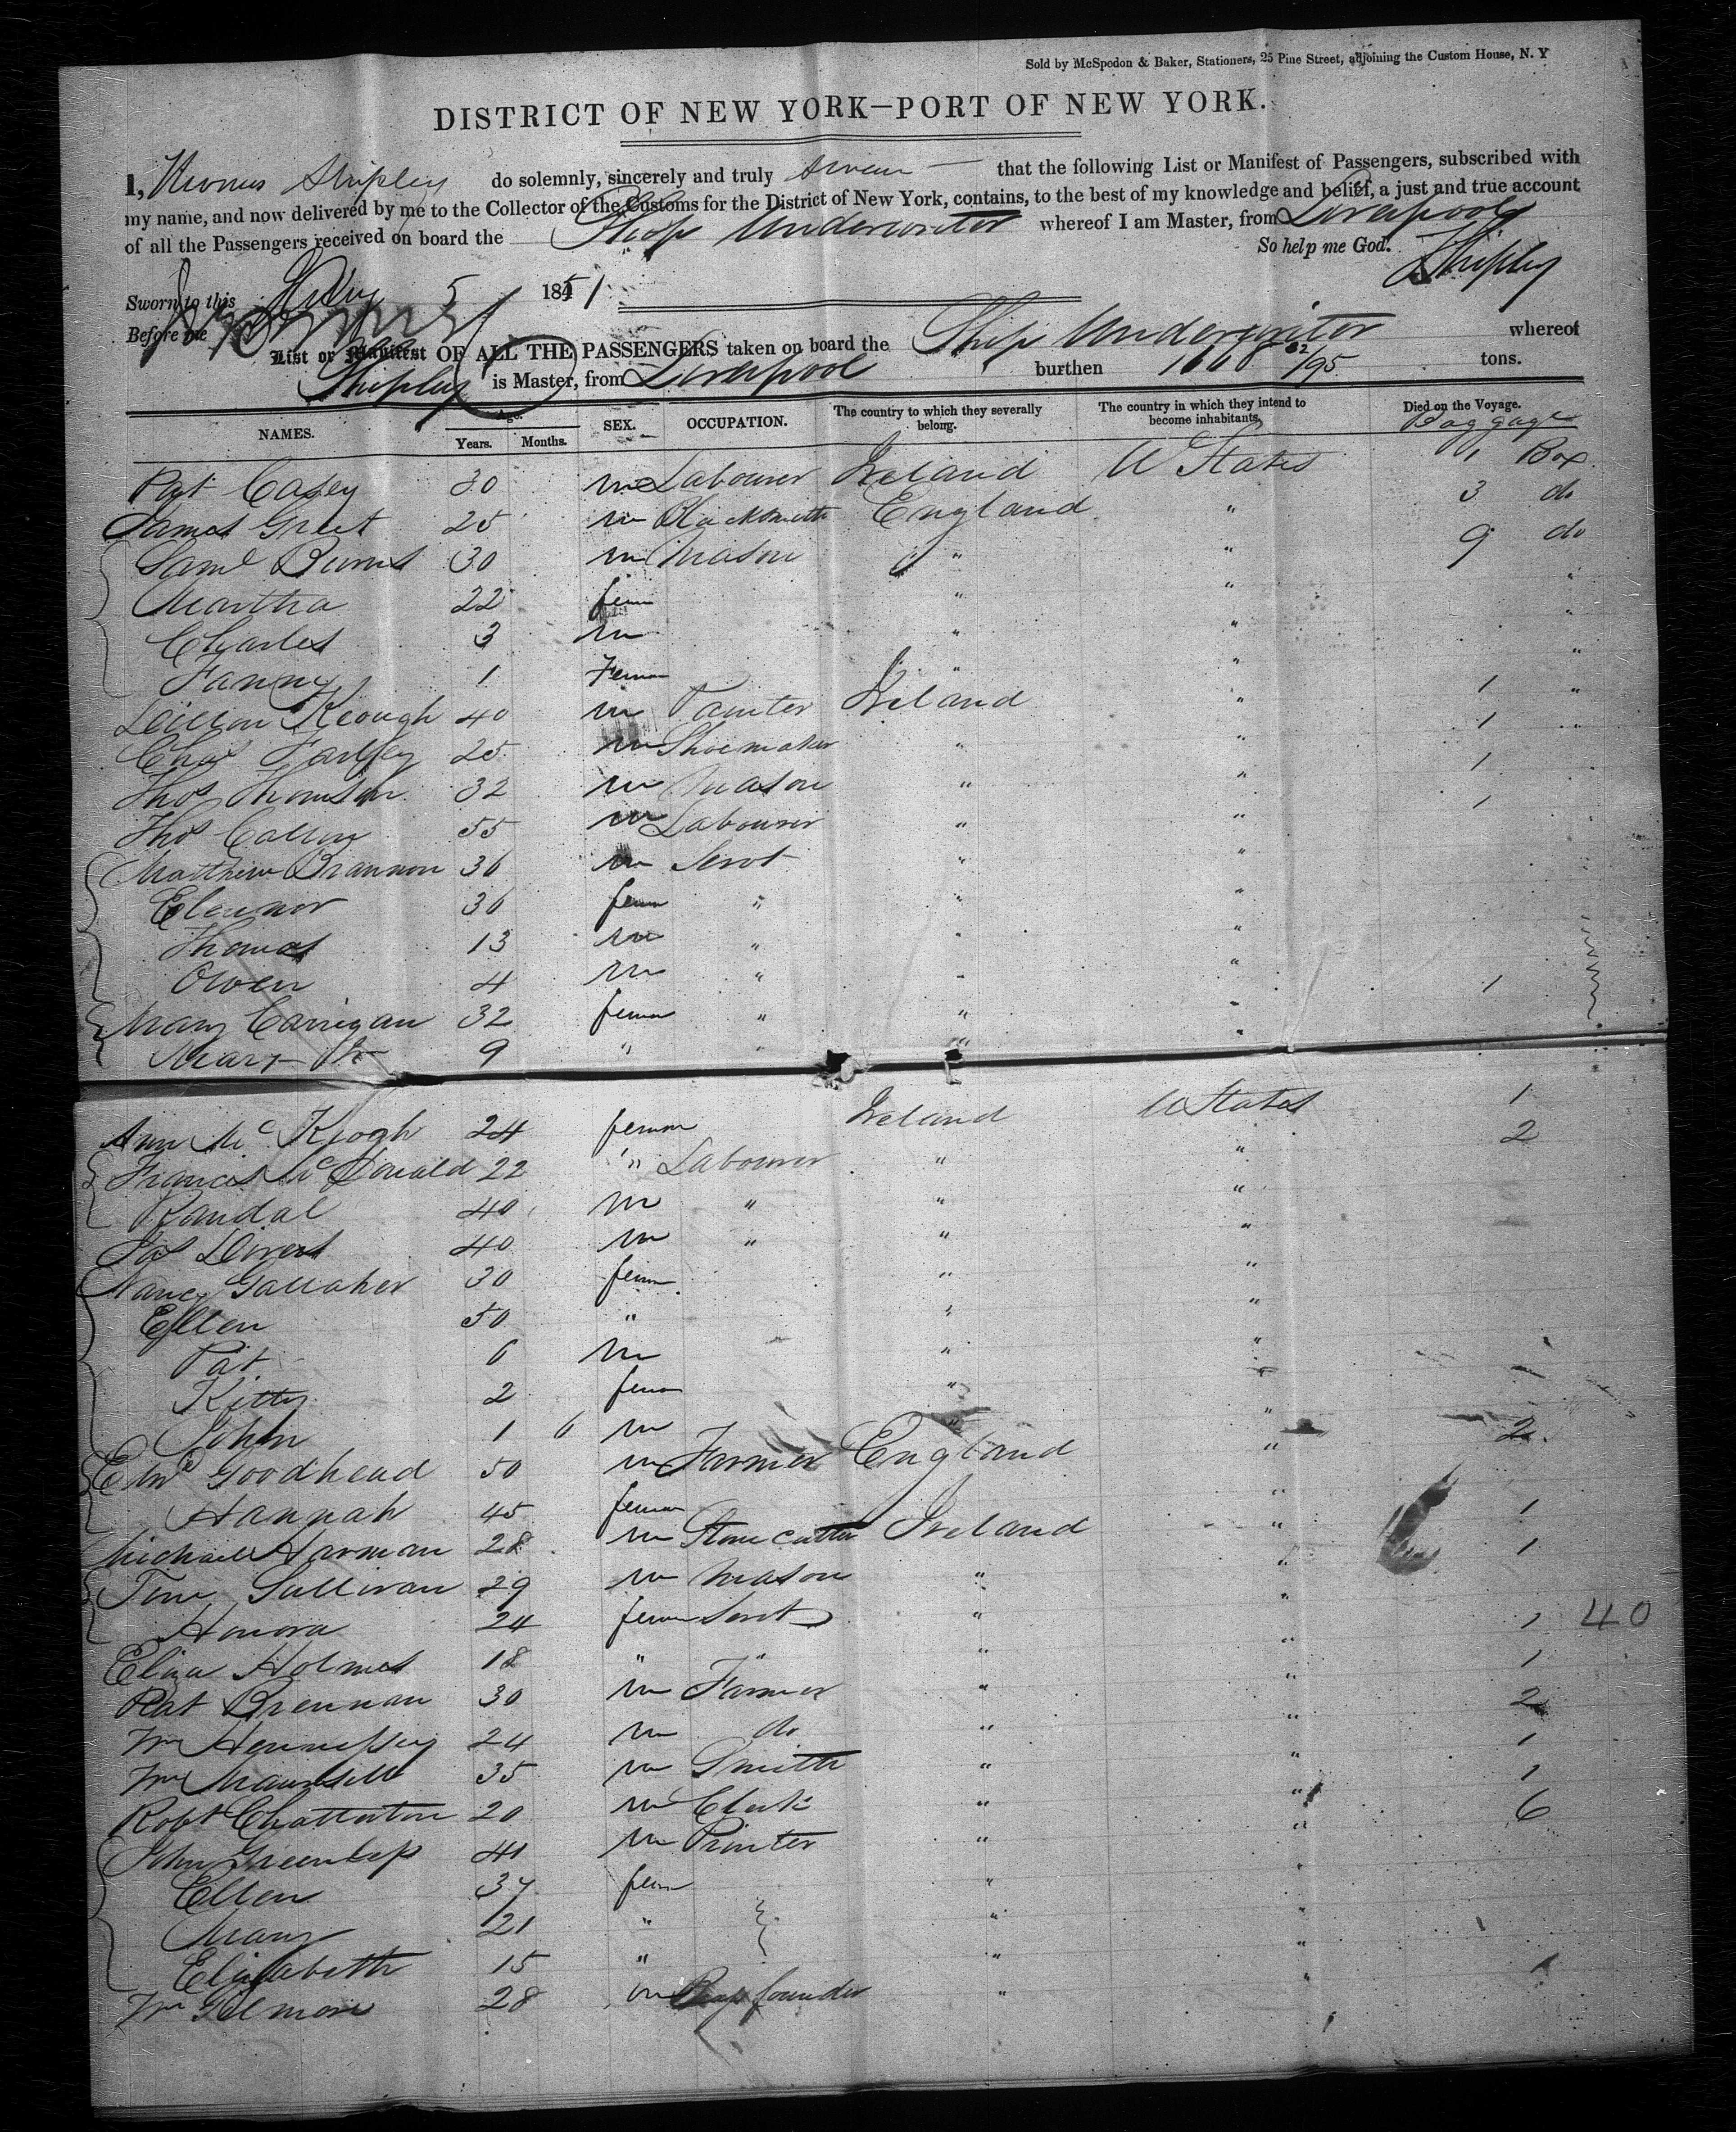 Sold by McSpedon & Baker, Stationers, 25 Pine Street, adjoining the Custom House, N. Y
DISTRICT OF NEW YORK—PORT OF NEW YORK.
I, Shipley do solemnly, sincerely and truly swear that the following List or Manifest of Passengers, subscribed with
my name, and now delivered by me to the Collector of the Customs for the District of New York, contains, to the best of my knowledge and belief, a just and true account
of all the Passengers received on board the Ship Underwriter whereof I am Master, from Liverpool
So help me God.
Shipley
Sworn to this 5 1851
Before me
List or Manifest OF ALL THE PASSENGERS taken on board the Ship Underwriter whereof
Shipley is Master, from Liverpool burthen 1168 82/95 tons.
NAMES. Age. Years. Months. SEX. OCCUPATION. The country to which they severally belong. The country in which they intend to become inhabitants. Died on the Voyage. Baggage
Pat Casey 30 m Labourer Ireland U States 1 Box
James Greet 25 m Blacksmith England " 3 do
Saml Burns 30 m Mason " " 9 do
Martha 22 fem " " "
Charles 3 m " " "
Fanny 1 Fem " " "
Keough 40 m Ireland " 1 "
Chas Farley 25 m Shoemaker " " 1 "
Thos Thomson 32 m Mason " " 1
Thos 55 m Labourer " " 1
Matthew Brannon 36 m Servt " "
Eleanor 36 fem " " "
Thomas 13 m " " "
Owen 4 m " " "
Mary Carrigan 32 fem " " " 1
Mary 9 " " " "
Ann Mc Keogh 24 fem Ireland U States 1
Frances Mc Donald 22 " Labourer " " 2
Randal 40 m " " "
Jas 40 m " " "
Nancy Gallaher 30 fem " "
Ellen 50 " " "
Pat 6 m " "
Kitty 2 fem " "
John 1 6 m " "
Edwd Goodhead 50 m Farmer England " 2
Hannah 45 fem "
Michael Harman 28 m Stone cutter Ireland " 1
Tim Sullivan 29 m Mason " " 1
Honora 24 fem Servt " "
Eliza Holmes 18 " " " " 1 40
Pat Brennan 30 m Farmer " " 1
Wm Hennessey 24 m do " " 2
Wm Maunsell 35 m Smith " " 1
Robt Chatterton 20 m Clerk " " 1
John Greenless 41 m Printer " " 6
Ellen 37 fem " "
Mary 21 " " "
Elizabeth 15 " " "
Wm Gilmore 28 m Brass founder " "